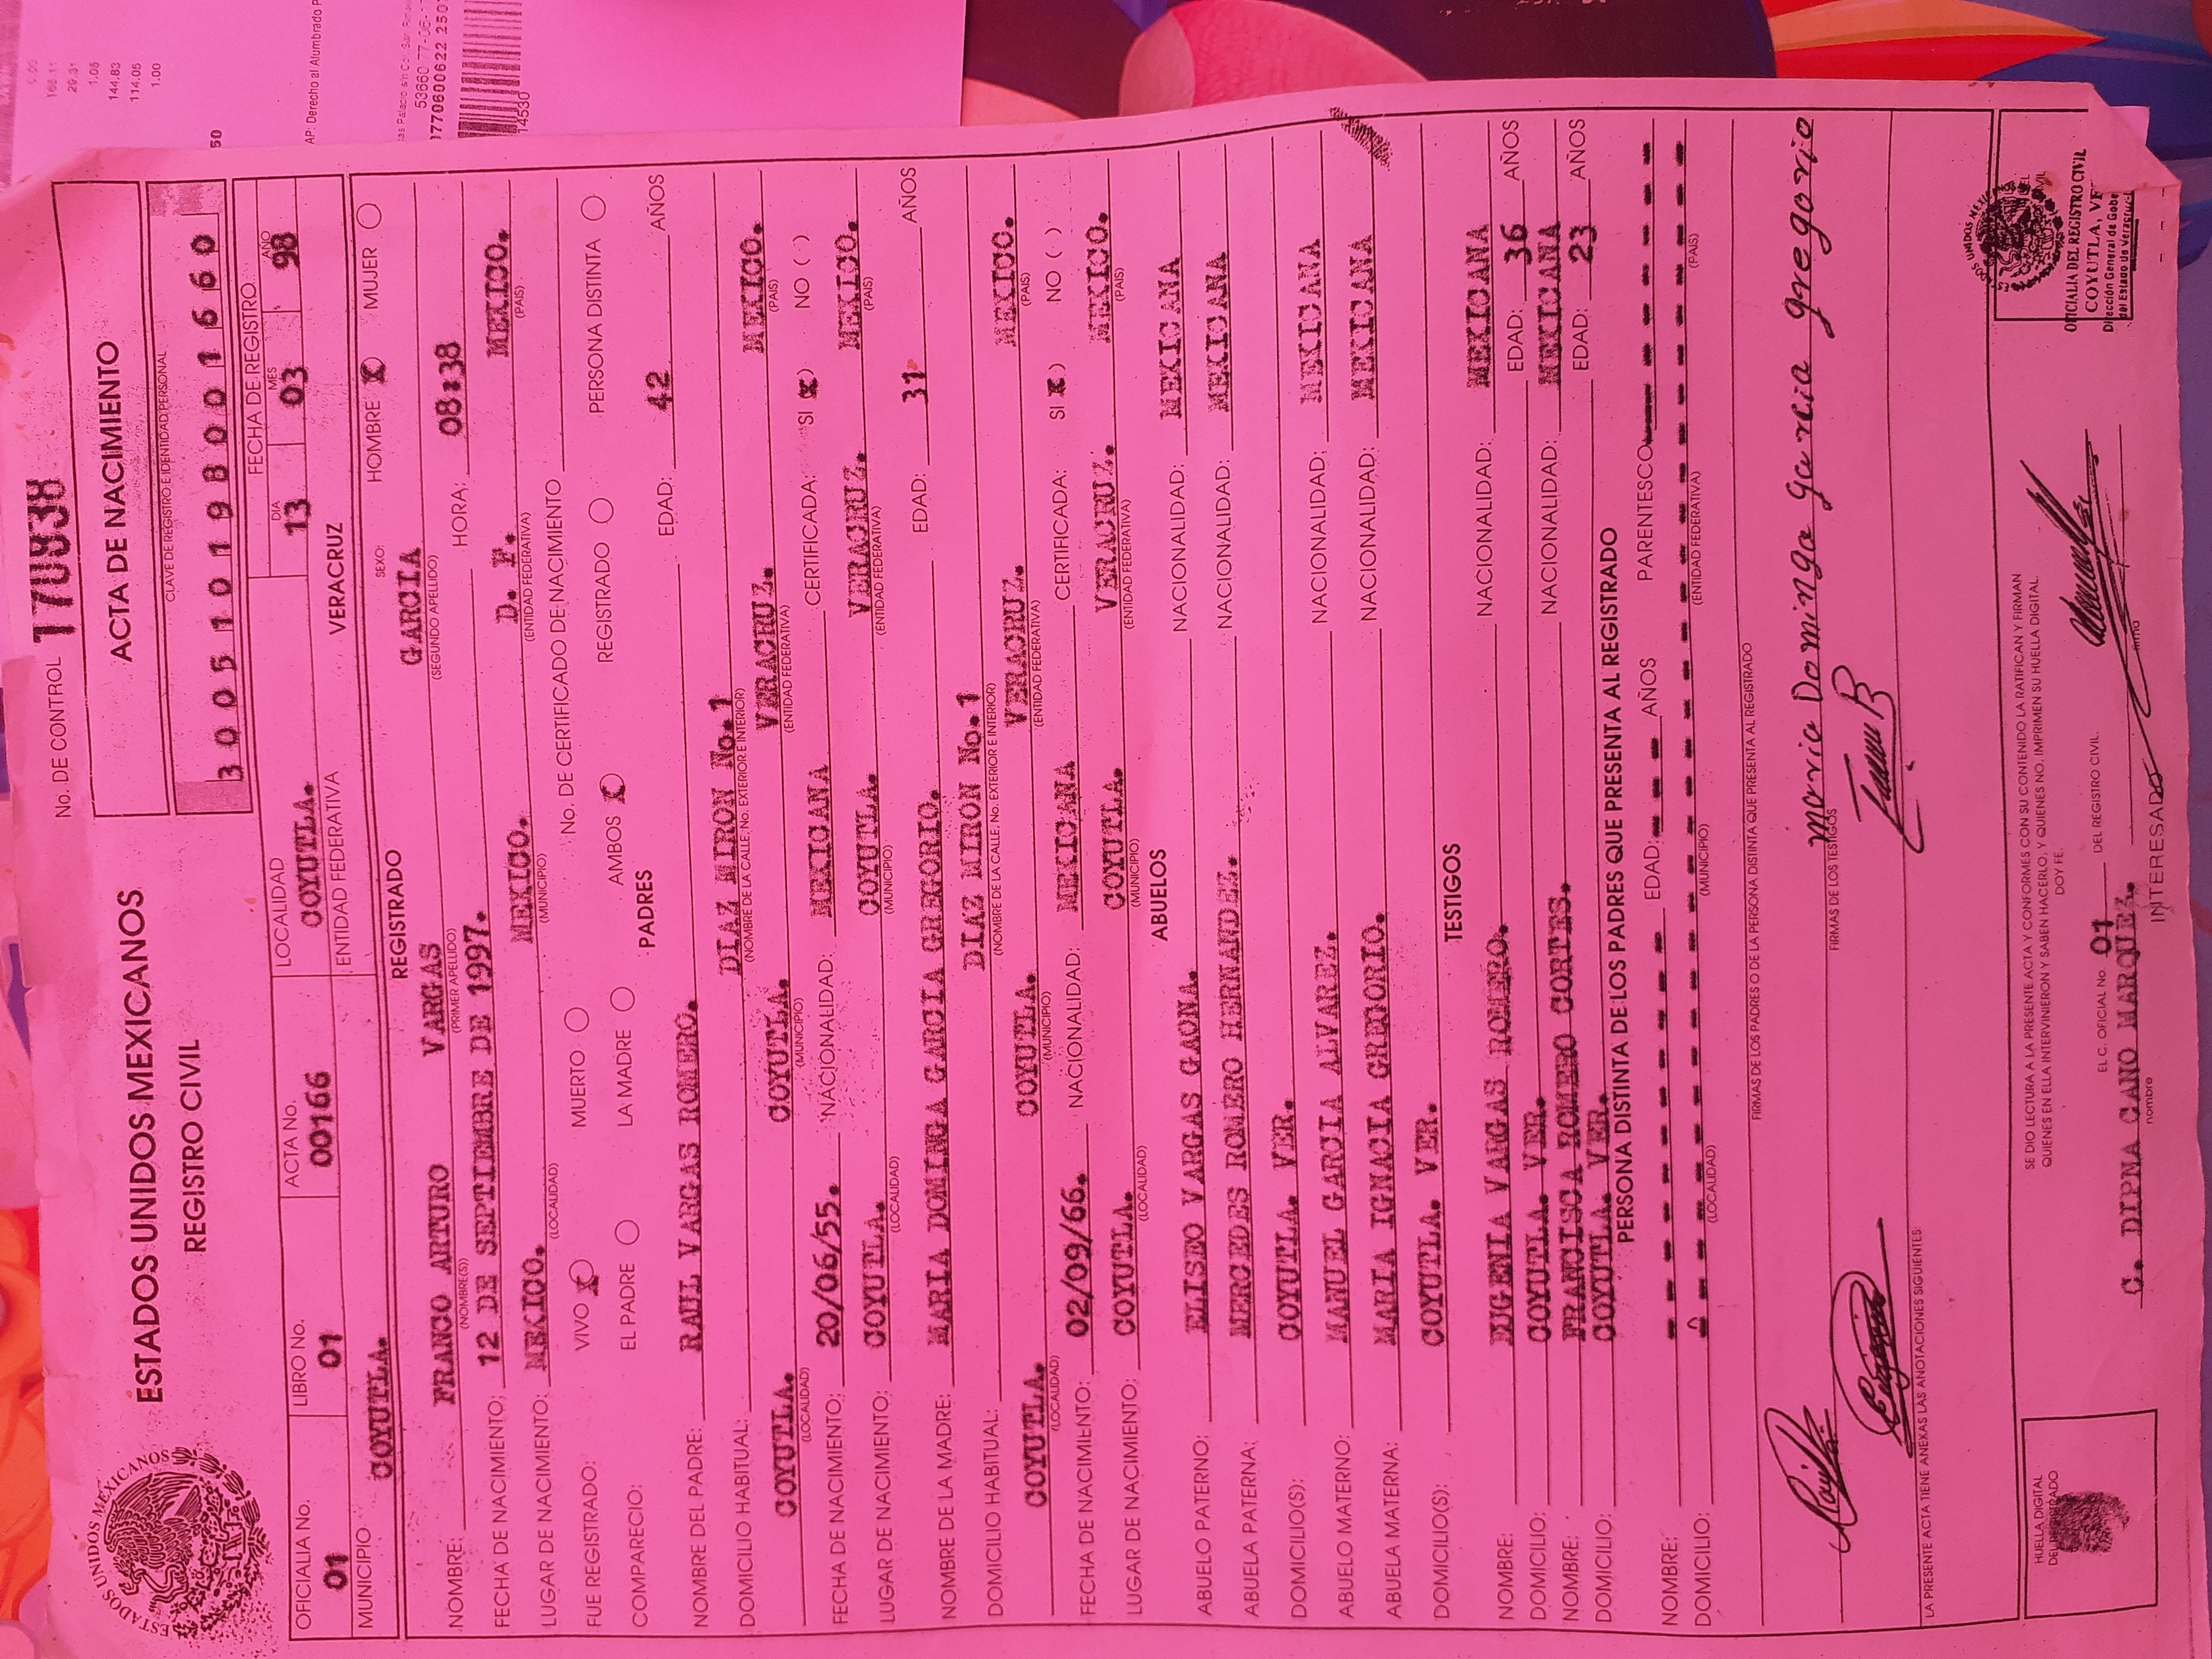 No. DE CONTROL 170938
ESTADOS UNIDOS MEXICANOS
REGISTRO CIVIL
ACTA DE NACIMIENTO
CLAVE DE REGISTRO E IDENTIDAD PERSONAL
3 0 0 5 1 0 1 9 8 0 0 1 6 6 0
OFICIALIA No. LIBRO No. ACTA No. LOCALIDAD FECHA DE REGISTRO
DIA MES AÑO
01 01 00166 COYUTLA. 13 03 98
MUNICIPIO ENTIDAD FEDERATIVA
COYUTLA. VERACRUZ
REGISTRADO SEXO: HOMBRE X MUJER
NOMBRE: FRANCO ARTURO VARGAS GARCIA
(NOMBRE(S) (PRIMER APELLIDO) (SEGUNDO APELLIDO)
FECHA DE NACIMIENTO: 12 DE SEPTIEMBRE DE 1997. HORA: 08:38
LUGAR DE NACIMIENTO: MEXICO. MEXICO. D. F. MEXICO.
(LOCALIDAD) (MUNICIPIO) (ENTIDAD FEDERATIVA) (PAIS)
FUE REGISTRADO: VIVO X MUERTO No. DE CERTIFICADO DE NACIMIENTO
COMPARECIO: EL PADRE LA MADRE AMBOS X REGISTRADO PERSONA DISTINTA
PADRES
NOMBRE DEL PADRE: RAUL VARGAS ROMERO. EDAD: 42 AÑOS
DOMICILIO HABITUAL: DIAZ MIRON No.1
(NOMBRE DE LA CALLE, No. EXTERIOR E INTERIOR)
COYUTLA. COYUTLA. VERACRUZ. MEXICO.
(LOCALIDAD) (MUNICIPIO) (ENTIDAD FEDERATIVA) (PAIS)
FECHA DE NACIMIENTO: 20/06/55. NACIONALIDAD: MEXICANA CERTIFICADA: SI (X) NO ( )
LUGAR DE NACIMIENTO: COYUTLA. COYUTLA. VERACRUZ. MEXICO.
(LOCALIDAD) (MUNICIPIO) (ENTIDAD FEDERATIVA) (PAIS)
NOMBRE DE LA MADRE: MARIA DOMINGA GARCIA GREGORIO. EDAD: 31 AÑOS
DOMICILIO HABITUAL: DIAZ MIRON No.1
(NOMBRE DE LA CALLE, No. EXTERIOR E INTERIOR)
COYUTLA. COYUTLA. VERACRUZ. MEXICO.
(LOCALIDAD) (MUNICIPIO) (ENTIDAD FEDERATIVA) (PAIS)
FECHA DE NACIMIENTO: 02/09/66. NACIONALIDAD: MEXICANA CERTIFICADA: SI (X) NO ( )
LUGAR DE NACIMIENTO: COYUTLA. COYUTLA. VERACRUZ. MEXICO.
(LOCALIDAD) (MUNICIPIO) (ENTIDAD FEDERATIVA) (PAIS)
ABUELOS
ABUELO PATERNO: ELISEO VARGAS GAONA. NACIONALIDAD: MEXICANA
ABUELA PATERNA: MERCEDES ROMERO HERNANDEZ. NACIONALIDAD: MEXICANA
DOMICILIO(S): COYUTLA. VER.
ABUELO MATERNO: MANUEL GARCIA ALVAREZ. NACIONALIDAD: MEXICANA
ABUELA MATERNA: MARIA IGNACIA GREGORIO. NACIONALIDAD: MEXICANA
DOMICILIO(S): COYUTLA. VER.
TESTIGOS
NOMBRE: EUGENIA VARGAS ROMERO. NACIONALIDAD: MEXICANA
DOMICILIO: COYUTLA. VER. EDAD: 36 AÑOS
NOMBRE: FRANCISCA ROMERO CORTES. NACIONALIDAD: MEXICANA
DOMICILIO: COYUTLA. VER. EDAD: 23 AÑOS
PERSONA DISTINTA DE LOS PADRES QUE PRESENTA AL REGISTRADO
NOMBRE: EDAD: AÑOS PARENTESCO
DOMICILIO:
(LOCALIDAD) (MUNICIPIO) (ENTIDAD FEDERATIVA) (PAIS)
FIRMAS DE LOS PADRES O DE LA PERSONA DISTINTA QUE PRESENTA AL REGISTRADO
Maria Dominga Garcia Gregorio
FIRMAS DE LOS TESTIGOS
LA PRESENTE ACTA TIENE ANEXAS LAS ANOTACIONES SIGUIENTES:
SE DIO LECTURA A LA PRESENTE ACTA Y CONFORMES CON SU CONTENIDO LA RATIFICAN Y FIRMAN
QUIENES EN ELLA INTERVINIERON Y SABEN HACERLO, Y QUIENES NO, IMPRIMEN SU HUELLA DIGITAL.
DOY FE.
EL C. OFICIAL No. 01 DEL REGISTRO CIVIL.
nombre firma
INTERESADO
HUELLA DIGITAL
DEL REGISTRADO
OFICIALIA DEL REGISTRO CIVIL
COYUTLA, VE
Dirección General de Gobe
del Estado de Veracruz
ESTADOS UNIDOS MEXICANOS
166.11
29.31
1.05
144.83
114.05
1.00
AP: Derecho al Alumbrado P
14530